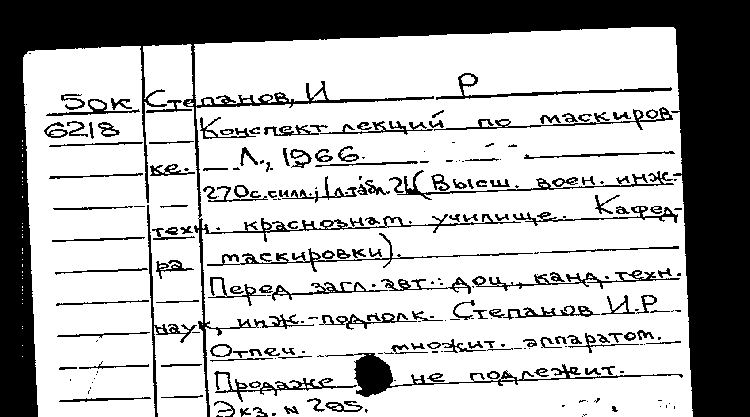 50к Степанов, И Р
6218 Конспект лекций по маскиров-
ке. Л., 1966.
270с. силл.; 1л.табл. 21 (Высш. воен. инж.-
техн. краснознам. училище. Кафед-
ра маскировки).
Перед загл. авт.: доц., канд. техн.
наук, инж.-подполк. Степанов И.Р
Отпеч. множит. аппаратом.
Продаже не подлежит.
Экз. N 205.